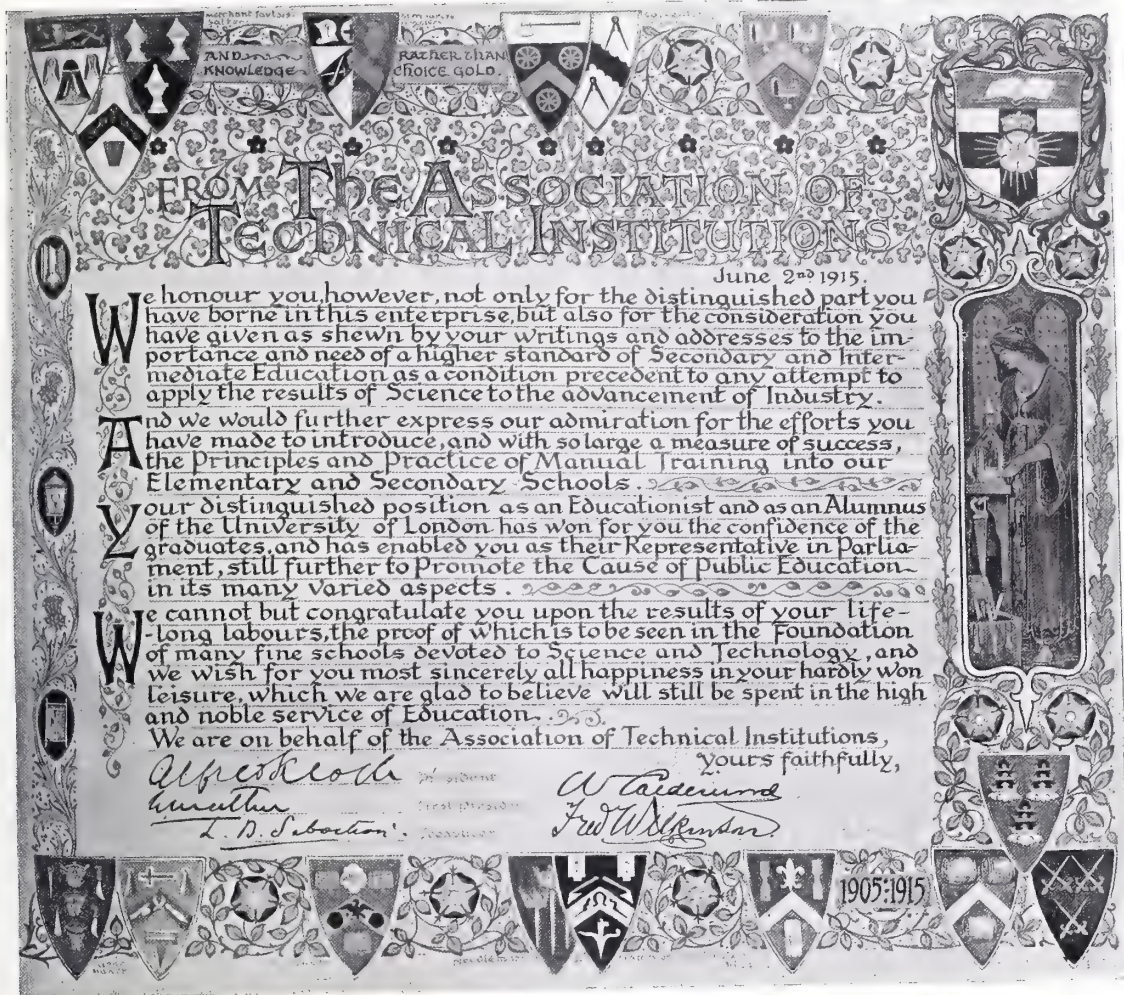 Merchant Taylors
AND
KNOWLEDGE
RATHER THAN
CHOICE GOLD.
FROM THE ASSOCIATION OF
TECHNICAL INSTITUTIONS
June 2nd 1915.
We honour you, however, not only for the distinguished part you
have borne in this enterprise, but also for the consideration you
have given as shewn by your writings and addresses to the im-
portance and need of a higher standard of Secondary and Inter-
mediate Education as a condition precedent to any attempt to
apply the results of Science to the advancement of Industry.
And we would further express our admiration for the efforts you
have made to introduce, and with so large a measure of success,
the Principles and Practice of Manual Training into our
Elementary and Secondary Schools.
Your distinguished position as an Educationist and as an Alumnus
of the University of London has won for you the confidence of the
graduates, and has enabled you as their Representative in Parlia-
ment, still further to Promote the Cause of Public Education
in its many varied aspects.
We cannot but congratulate you upon the results of your life-
-long labours, the proof of which is to be seen in the Foundation
of many fine schools devoted to Science and Technology, and
we wish for you most sincerely all happiness in your hardly won
leisure, which we are glad to believe will still be spent in the high
and noble service of Education.
We are on behalf of the Association of Technical Institutions,
Yours faithfully,
President
First President
Treasurer
Fred Wilkinson
1905:1915